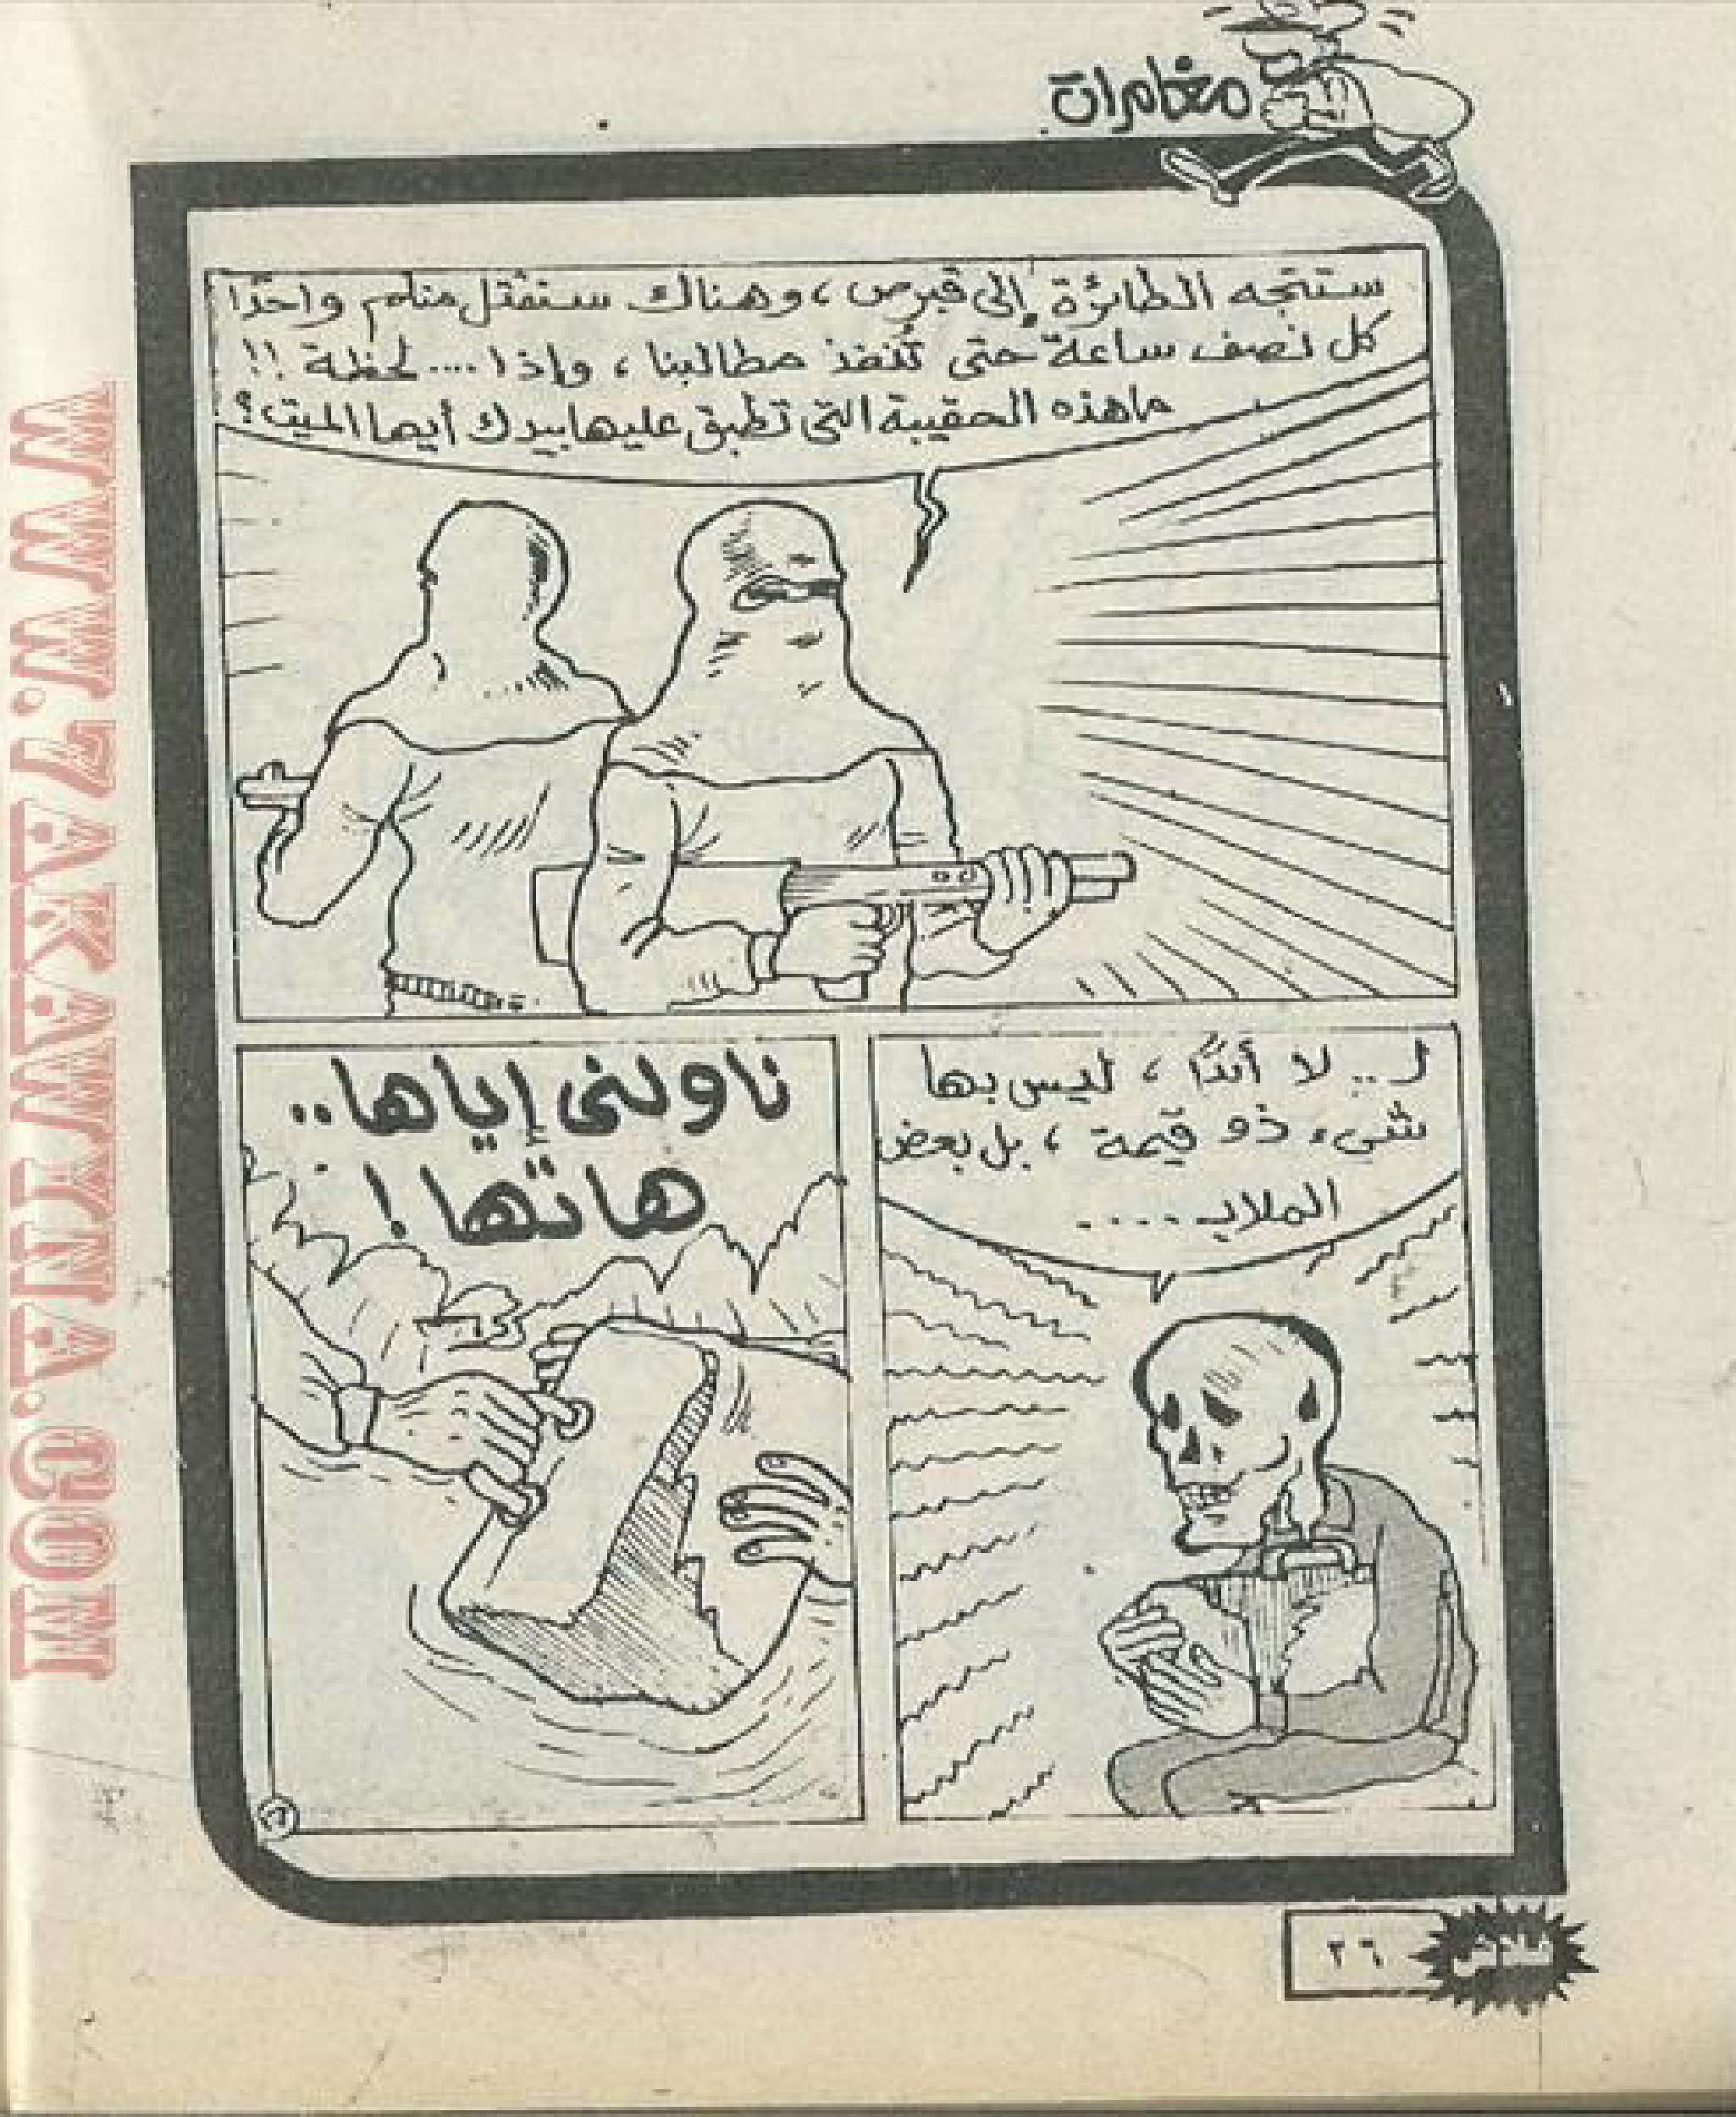 مغامرات
ستتجه الطائرة إلى قبرص، وهناك سنقتل منكم واحدًا
كل نصف ساعة حتى تُنفذ مطالبنا، وإذا .... لحظة !!
ماهذه الحقيبة التى تطبق عليها بيدك أيها الميت؟
لـ .. لا أبدًا، ليس بها
شىء ذو قيمة، بل بعض
الملابـ ....
ناولنى إياها ..
هاتها !
٢٦
فلاش
WWW.7AKAWITNA.COM